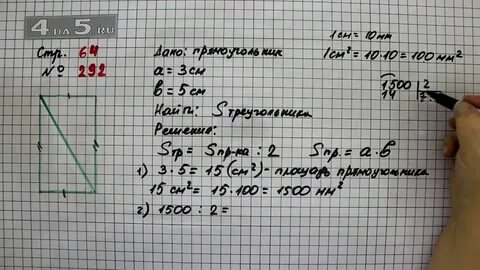 4 DA 5 .RU
Стр. 64
№ 292
Дано: прямоугольник
a = 3 см
b = 5 см
Найти: S треугольника
Решение:
Sтр = Sпр-ка : 2 Sпр. = a · b
1) 3 · 5 = 15 (см²) - площадь прямоугольника
15 см² = 15 · 100 = 1500 мм²
2) 1500 : 2 =
1 см = 10 мм
1 см² = 10 · 10 = 100 мм²
1500 2
14 7